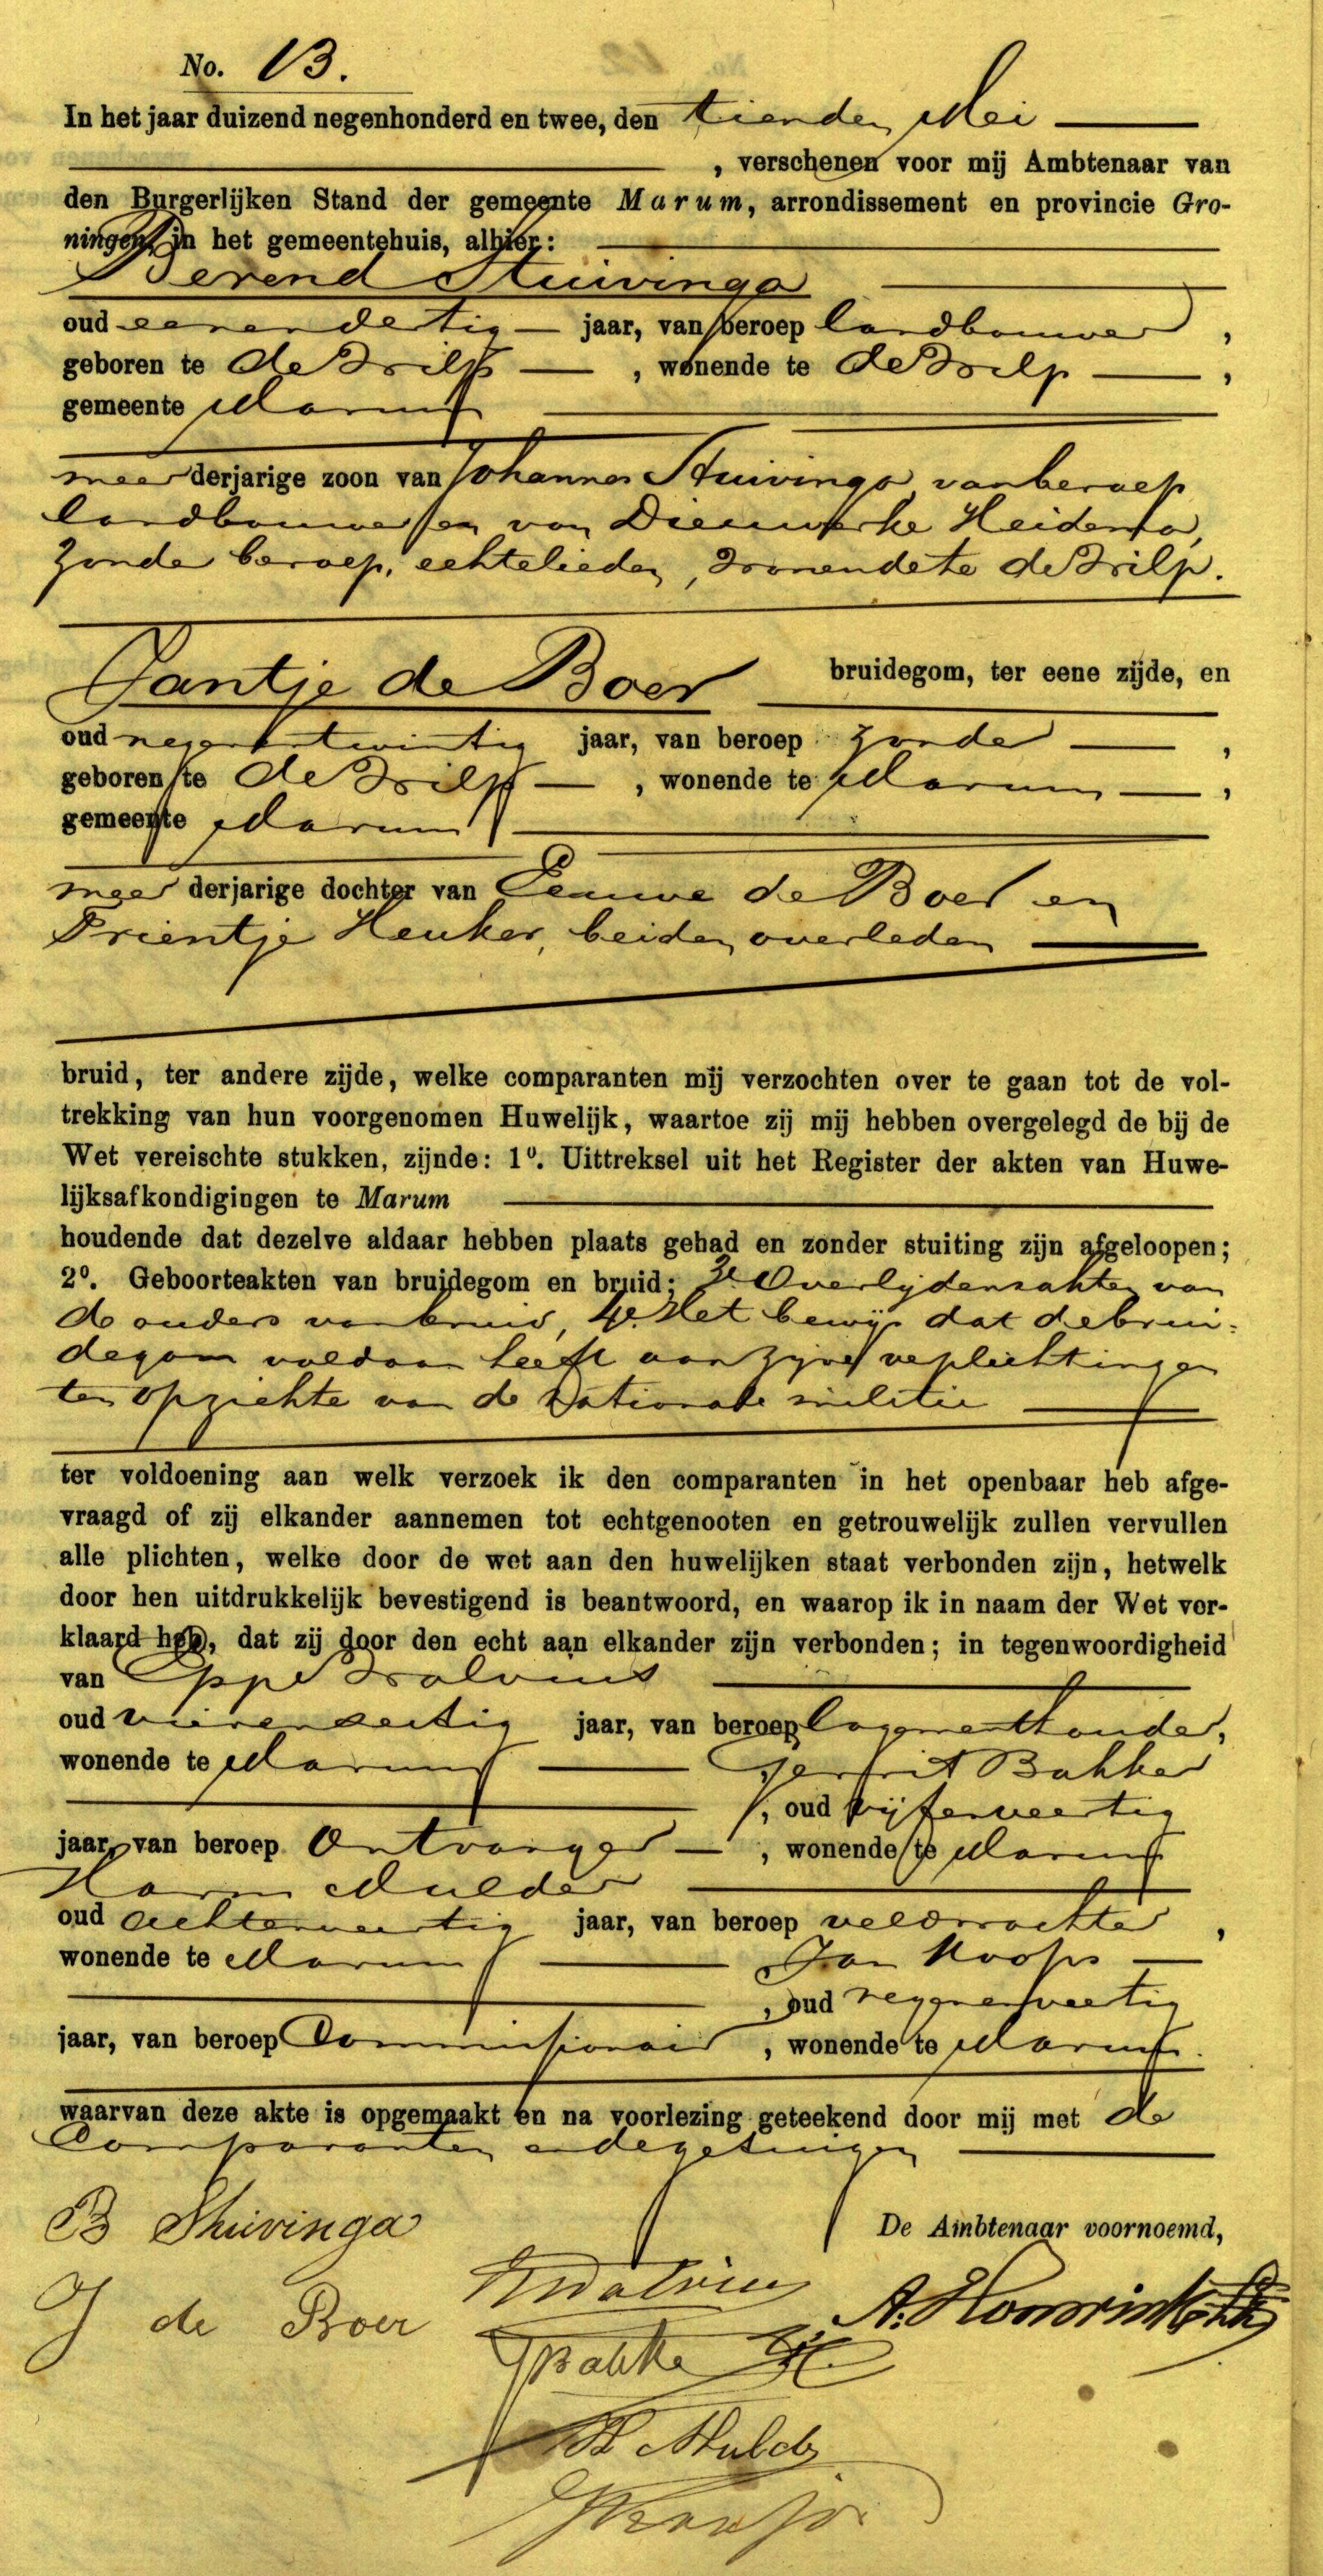 No. 13.
In het jaar duizend negenhonderd en twee, den tienden Mei
, verschenen voor mij Ambtenaar van
den Burgerlijken Stand der gemeente Marum, arrondissement en provincie Gro-
ningen, in het gemeentehuis, alhier:
Berend Stuivinga
oud eenendertig jaar, van beroep landbouwer,
geboren te de Wilp, wonende te de Wilp,
gemeente Marum
meerderjarige zoon van Johannes Stuivinga, van beroep
landbouwer en van Dieuwerke Heidema,
zonder beroep, echtelieden, wonende te de Wilp.
bruidegom, ter eene zijde, en
Jantje de Boer
oud negenentwintig jaar, van beroep zonder,
geboren te de Wilp, wonende te Marum,
gemeente Marum
meerderjarige dochter van Eeuwe de Boer en
Trientje Heuker, beiden overleden
bruid, ter andere zijde, welke comparanten mij verzochten over te gaan tot de vol-
trekking van hun voorgenomen Huwelijk, waartoe zij mij hebben overgelegd de bij de
Wet vereischte stukken, zijnde: 1º. Uittreksel uit het Register der akten van Huwe-
lijksafkondigingen te Marum
houdende dat dezelve aldaar hebben plaats gehad en zonder stuiting zijn afgeloopen;
2º. Geboorteakten van bruidegom en bruid; 3e Overlijdensakten van
de ouders van bruid, 4e. Het bewijs dat de brui-
degom voldaan heeft aan zijne verplichtingen
ten opzichte van de Nationale militie
ter voldoening aan welk verzoek ik den comparanten in het openbaar heb afge-
vraagd of zij elkander aannemen tot echtgenooten en getrouwelijk zullen vervullen
alle plichten, welke door de wet aan den huwelijken staat verbonden zijn, hetwelk
door hen uitdrukkelijk bevestigend is beantwoord, en waarop ik in naam der Wet ver-
klaard heb, dat zij door den echt aan elkander zijn verbonden; in tegenwoordigheid
van Eppe Walvius
oud vierenzestig jaar, van beroep logementhouder,
wonende te Marum, Gerrit Bakker
, oud vijfenveertig
jaar, van beroep Ontvanger, wonende te Marum
Harm Mulder
oud achtenveertig jaar, van beroep veldwachter,
wonende te Marum, Jan Koops
, oud negenenveertig
jaar, van beroep Commissionair, wonende te Marum.
waarvan deze akte is opgemaakt en na voorlezing geteekend door mij met de
Comparanten en de getuigen
De Ambtenaar voornoemd,
B Stuivinga
J de Boer
E Walvius
G Bakker
H Mulder
J Koops